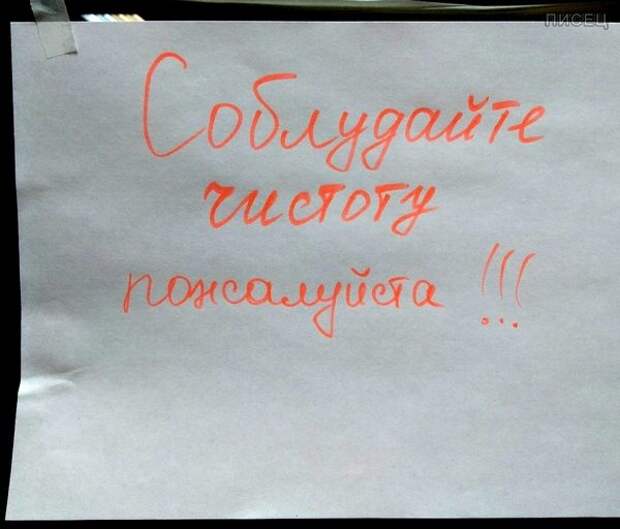 ПИСЕЦ
Соблудайте
чистоту
пожалуйста !!!